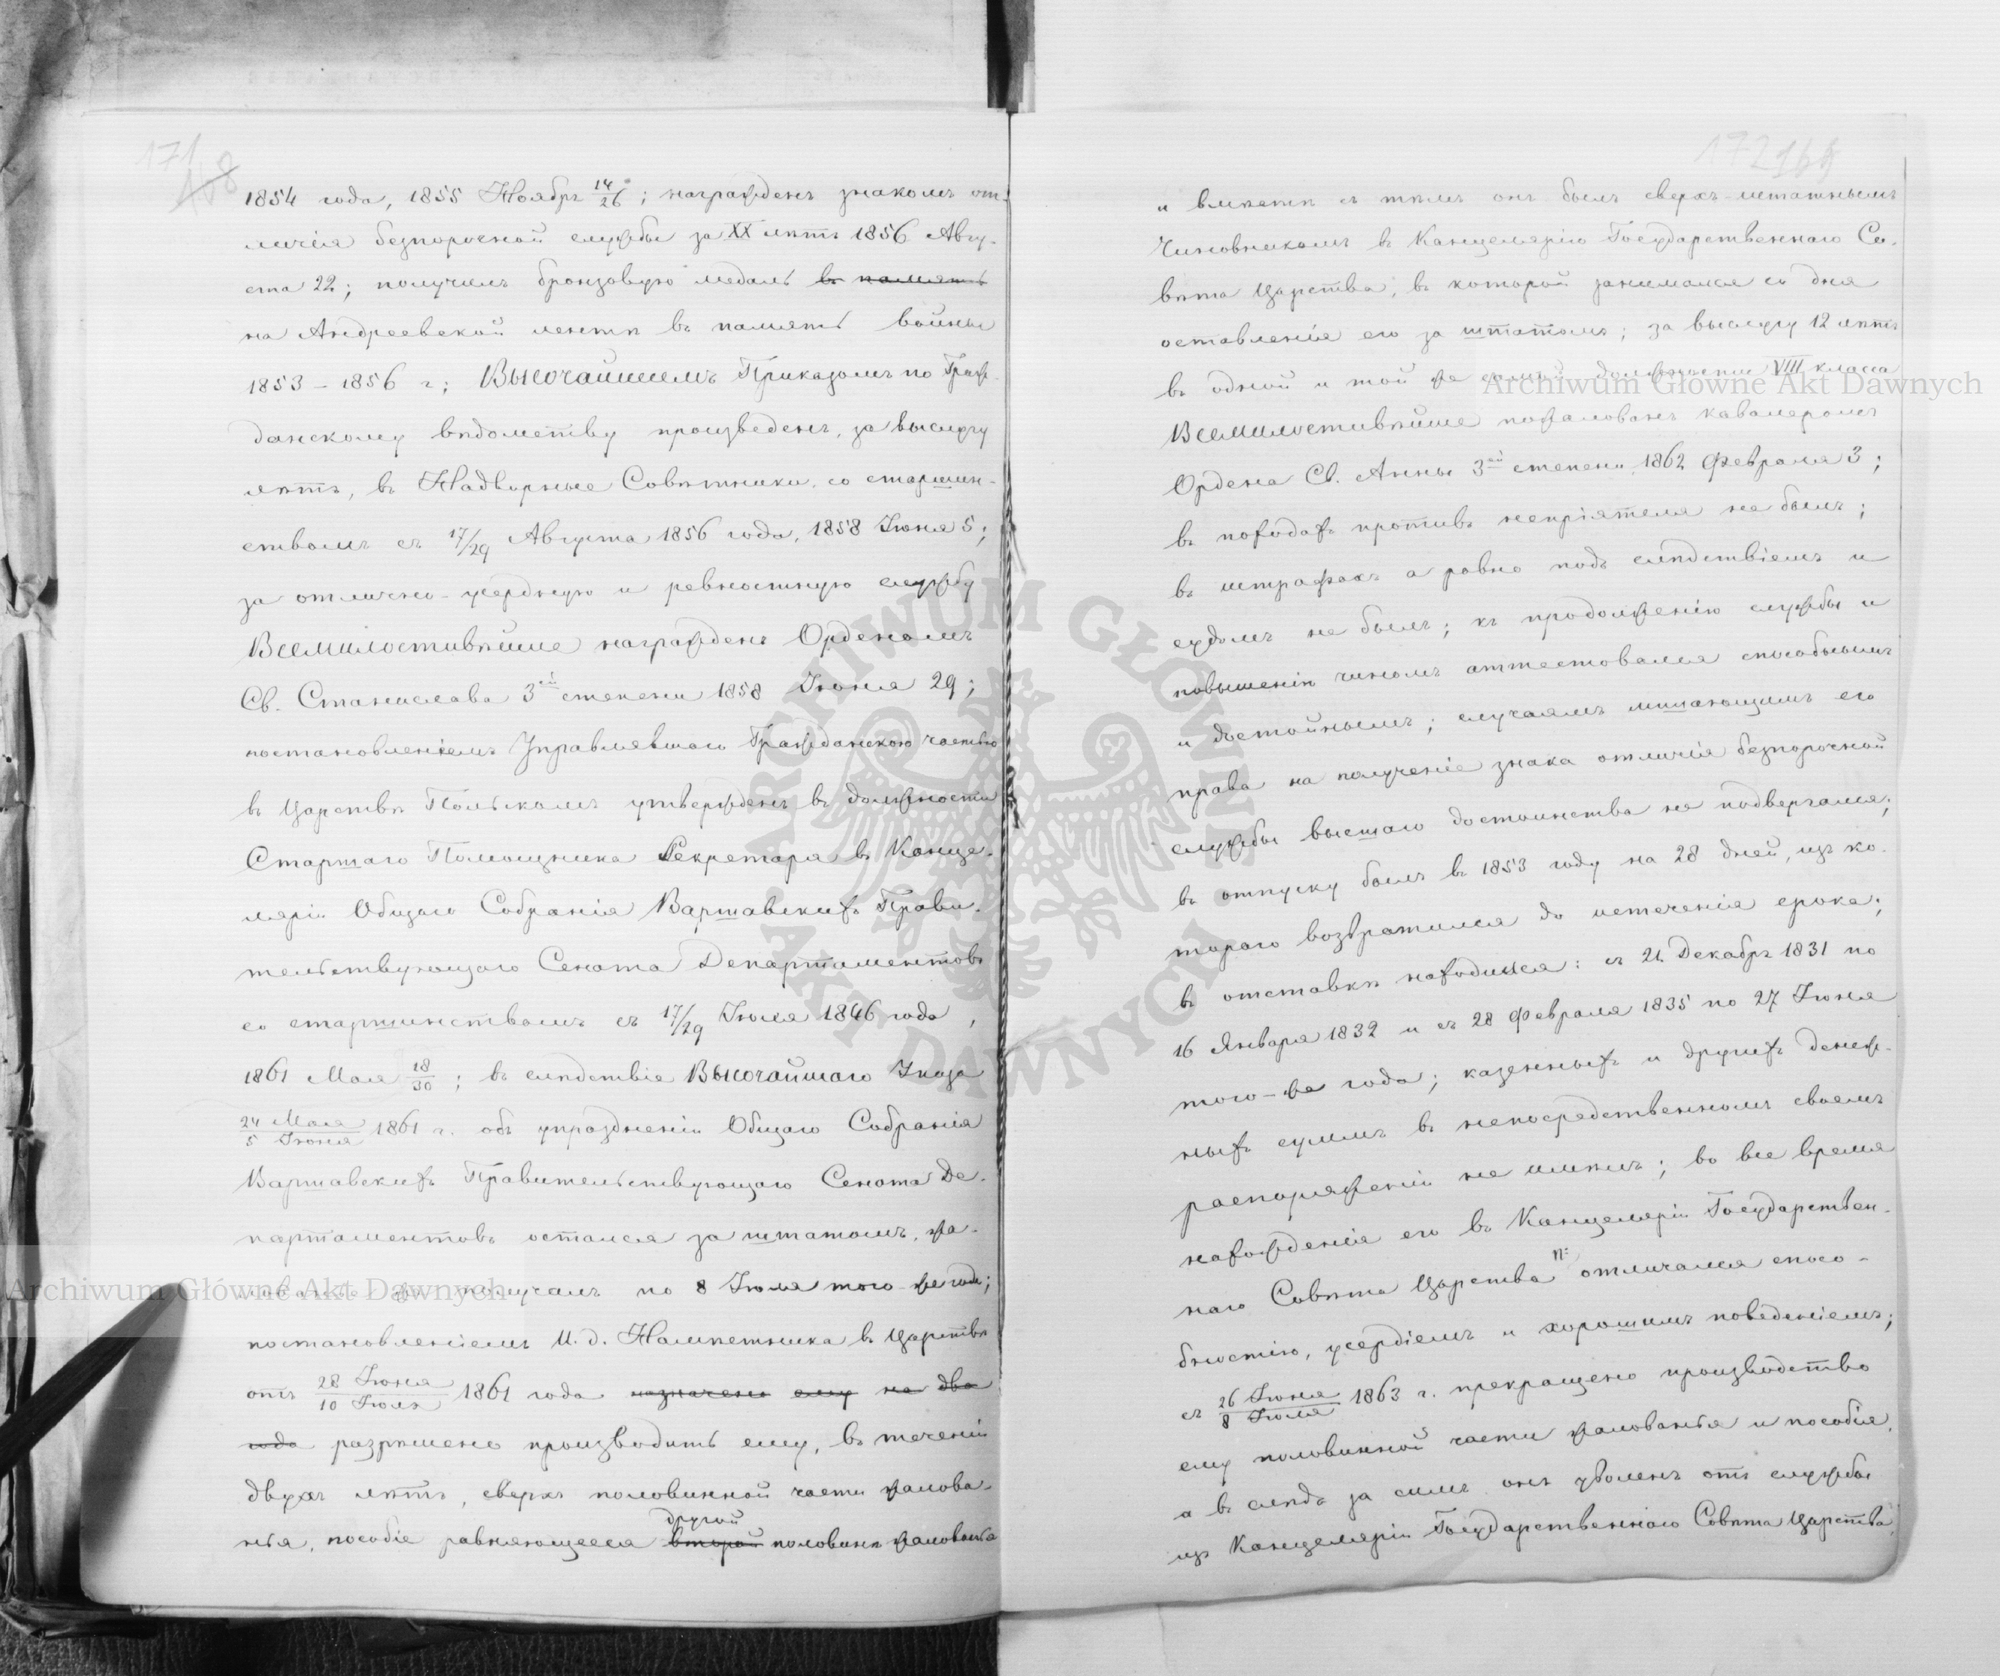 171
168
1854 года, 1855 Ноября 14/26; награжденъ знакомъ от-
личія безпорочной службы за XX лѣтъ 1856 Авгу-
ста 22; получилъ бронзовую медаль въ память
на Андреевской лентѣ въ память войны
1853 – 1856 г; Высочайшимъ Приказомъ по Граж-
данскому вѣдомству произведенъ, за выслугу
лѣтъ, въ Надворные Совѣтники, со старшин-
ствомъ съ 17/29 Августа 1856 года, 1858 Іюня 5;
за отлично-усердную и ревностную службу
Всемилостивѣйше награжденъ Орденомъ
Св. Станислава 3ей степени 1858 Іюня 29;
постановленіемъ Управлявшаго Гражданскою частью
въ Царствѣ Польскомъ утвержденъ въ должности
Старшаго Помощника Секретаря въ Канце-
ляріи Общаго Собранія Варшавскихъ Прави-
тельствующаго Сената Департаментовъ
со старшинствомъ съ 17/29 Іюля 1846 года,
1861 Мая 18/30; въ слѣдствіе Высочайшаго Указа
24 Мая/5 Іюня 1861 г. объ упраздненіи Общаго Собранія
Варшавскихъ Правительствующаго Сената Де-
партаментовъ остался за штатомъ, жа-
лованье получалъ по 8 Іюля того-же года;
постановленіемъ И. д. Намѣстника въ Царствѣ
отъ 28 Іюня/10 Іюля 1861 года назначено ему на два
года разрѣшено производить ему, въ теченіи
двухъ лѣтъ, сверхъ половинной части жалова-
нья, пособіе равняющееся второй другой половинѣ жалованья
172 169
и вмѣстѣ съ тѣмъ онъ былъ сверхъ-штатнымъ
Чиновникомъ въ Канцелярію Государственнаго Со-
вѣта Царства, въ которой занимался со дня
оставленія его за штатомъ; за выслугу 12 лѣтъ
въ одной и той же самой должности VIII класса
Всемилостивѣйше пожалованъ Кавалеромъ
Ордена Св. Анны 3ей степени 1862 Февраля 3;
въ походахъ противъ непріятеля не былъ;
въ штрафахъ а равно подъ слѣдствіемъ и
судомъ не былъ; къ продолженію службы и
повышенію чиномъ аттестовался способнымъ
и достойнымъ; случаямъ лишающимъ его
права на полученіе знака отличія безпорочной
службы высшаго достоинства не подвергался;
въ отпуску былъ въ 1853 году на 28 дней, изъ ко-
тораго возвратился до истеченія срока;
въ отставкѣ находился: съ 21 Декабря 1831 по
16 Января 1832 и съ 28 Февраля 1835 по 27 Іюня
того-же года; казенныхъ и другихъ денеж-
ныхъ суммъ въ непосредственномъ своемъ
распоряженіи не имѣлъ; во все время
нахожденія его въ Канцеляріи Государствен-
наго Совѣта Царства отличался спосо-
бностію, усердіемъ и хорошимъ поведеніемъ;
съ 26 Іюня/8 Іюля 1863 г. прекращено производство
ему половинной части жалованья и пособія,
а въ слѣдъ за симъ онъ уволенъ отъ службы
изъ Канцеляріи Государственнаго Совѣта Царства,
Archiwum Główne Akt Dawnych
Archiwum Główne Akt Dawnych
ARCHIWUM GŁÓWNE AKT DAWNYCH